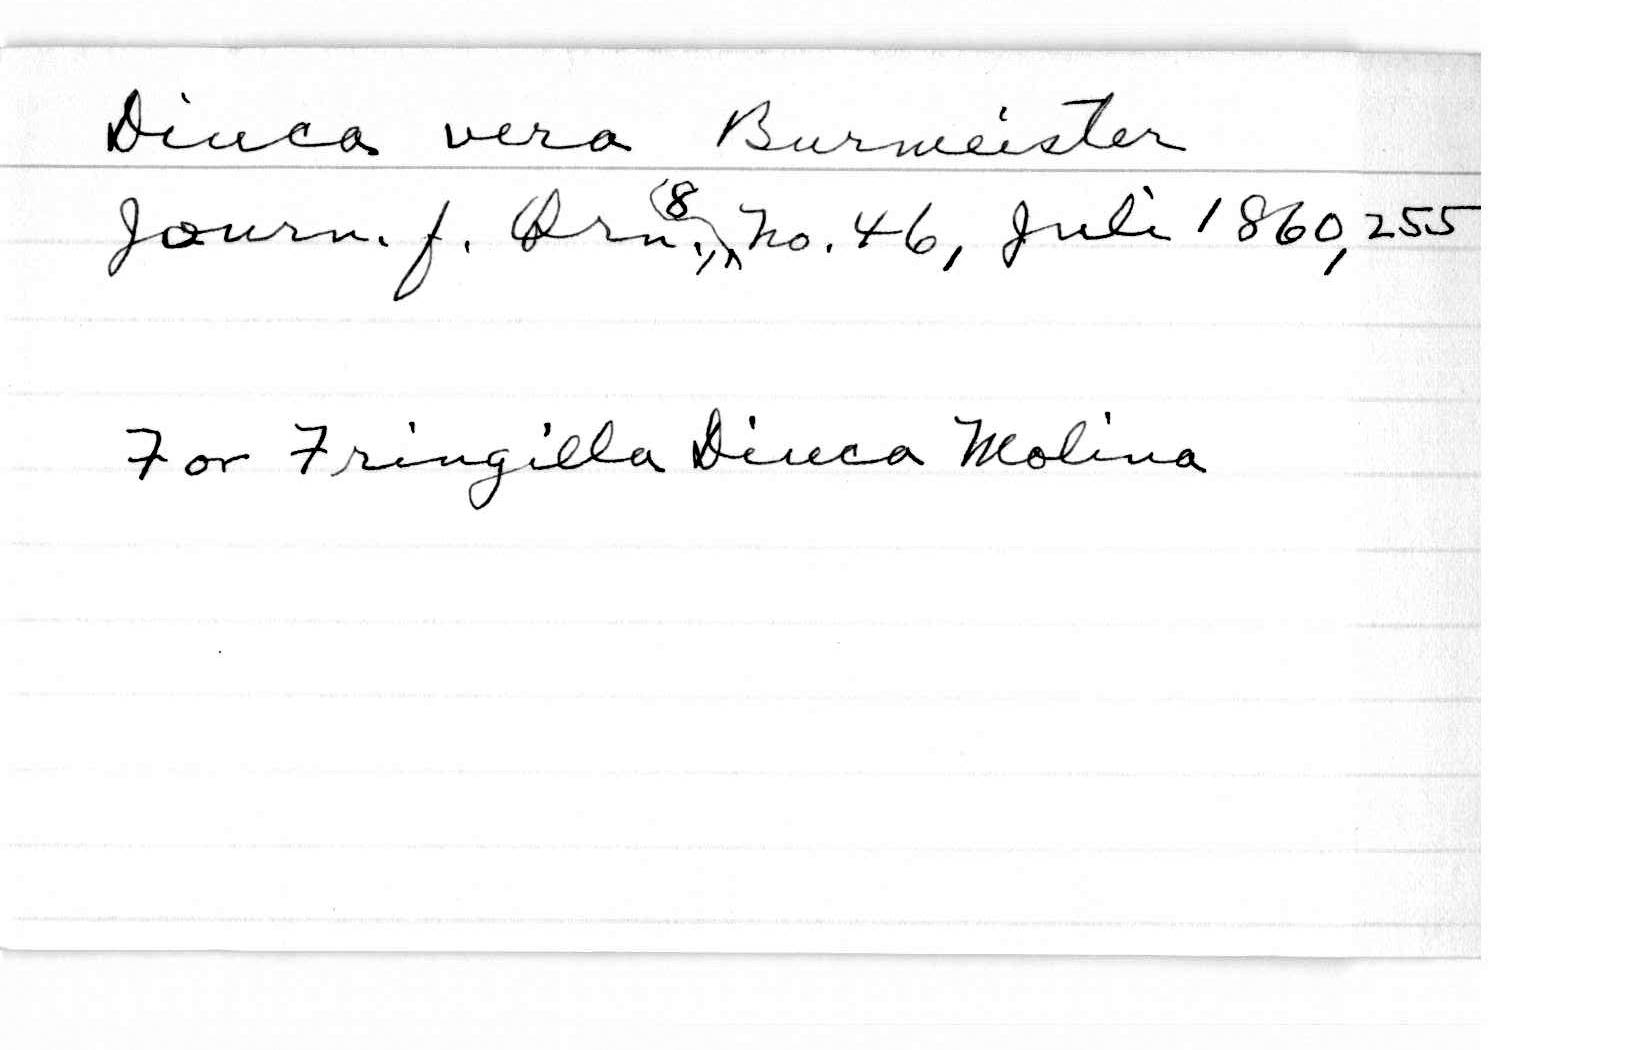 Diuca vera Burmeister
Journ. f. Orn., 8, No. 46, Juli 1860, 255
For Fringilla Diuca Molina